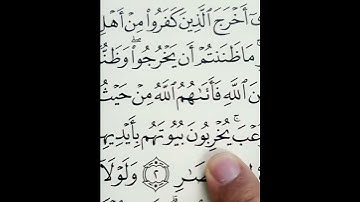 أَخْرَجَ ٱلَّذِينَ كَفَرُوا۟ مِنْ أَهْلِ
مَا ظَنَنتُمْ أَن يَخْرُجُوا۟ ۖ وَظَنُّ
ٱللَّهِ فَأَتَىٰهُمُ ٱللَّهُ مِنْ حَيْثُ
يُخْرِبُونَ بُيُوتَهُم بِأَيْدِيهِ
٢ وَلَوْلَآ